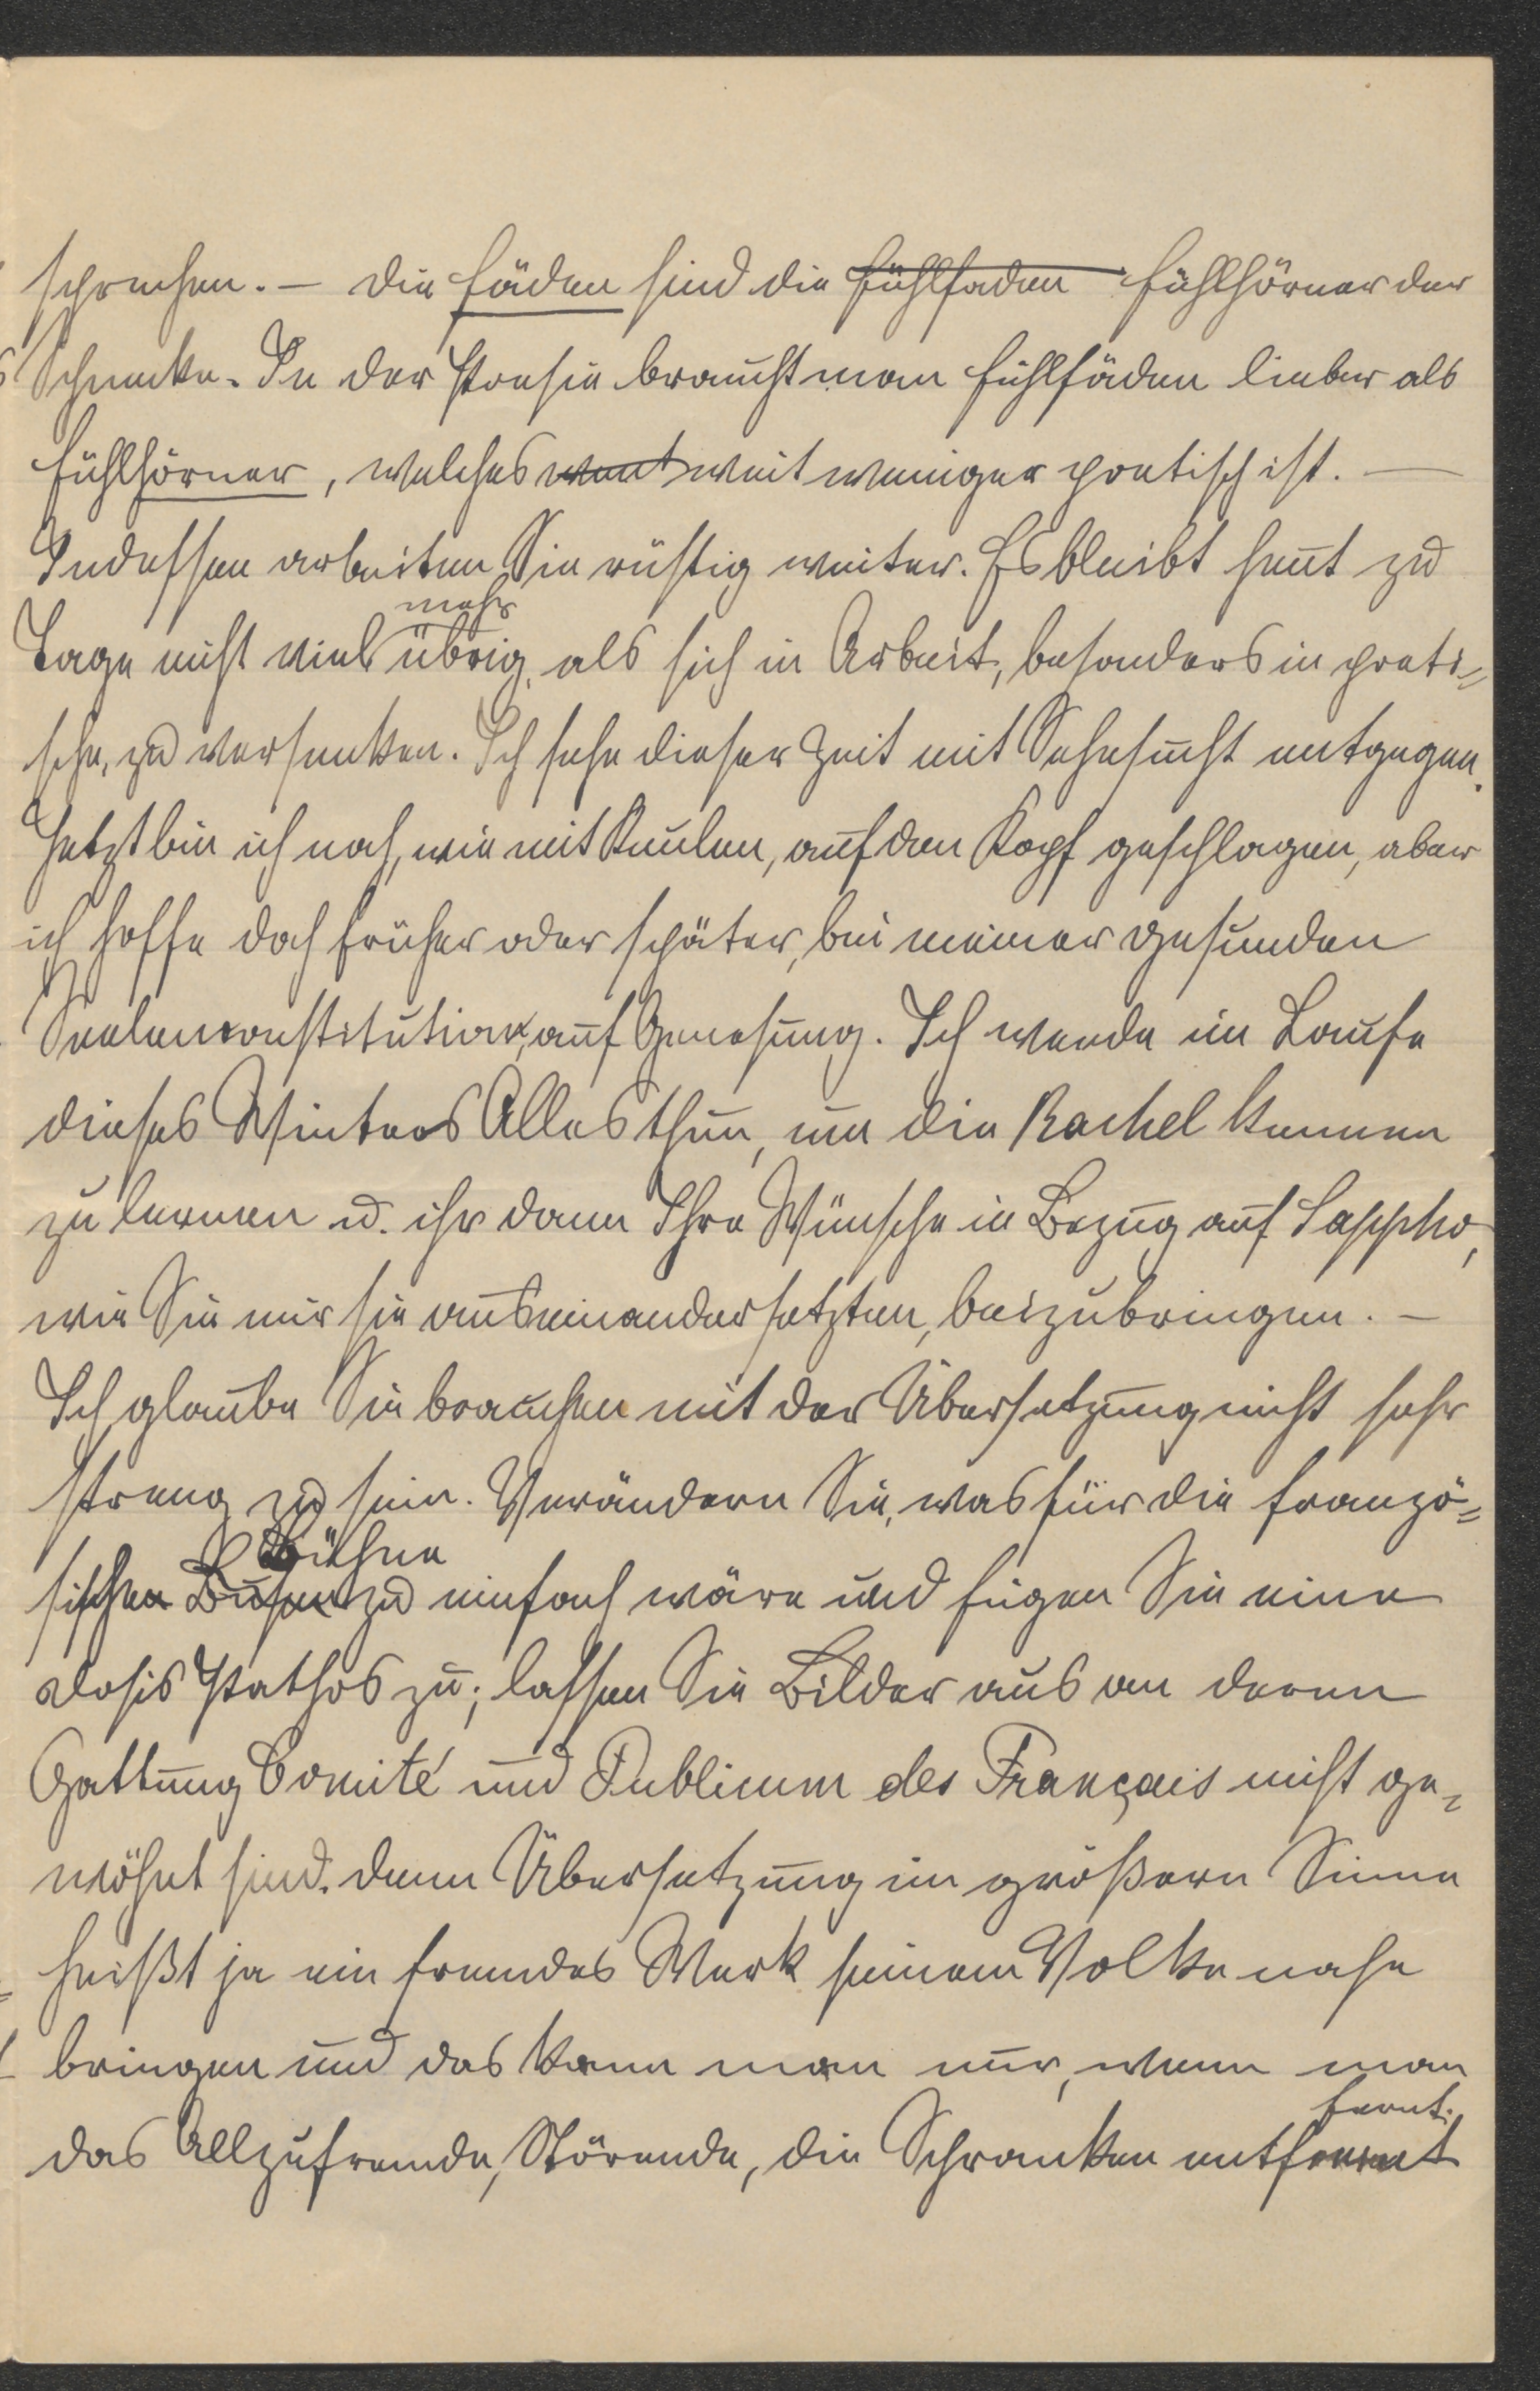 sprechen. – Die Fäden sind die Fühlfaden Fühlhörner der
Schnecke. In der Poesie braucht man Fühlfäden lieber als
Fühlhörner, welches weit weniger poetisch ist. —
Indessen arbeiten Sie rüstig weiter. Es bleibt heut zu
mehr
Tage nicht viel übrig, als sich in Arbeit, besonders in poeti=
sche, zu versenken. Ich sehe dieser Zeit mit Sehnsucht entgegen.
Jetzt bin ich noch, wie mit Keulen, auf den Kopf geschlagen, aber
ich hoffe doch früher oder später, bei meiner gesunden
Seelenconstitution, auf Genesung. Ich werde im Laufe
dieses Winters Alles thun, um die Rachel kennen
zu lernen u. ihr dann Ihre Wünsche in Bezug auf Sappho,
wie Sie mir sie auseinandersetzten, beizubringen. –
Ich glaube Sie brauchen mit der Übersetzung nicht sehr
streng zu sein. Verändern Sie, was für die franzö=
Bühne
sischen Busen zu einfach wäre und fügen Sie eine
Dosis Pathos zu; lassen Sie Bilder aus an deren
Gattung Comité und Publicum des Français nicht ge=
wöhnt sind. Denn Übersetzung im größern Sinne
heißt ja ein fremdes Werk seinem Volke nahe
bringen und das kann man nur, wenn man
fernt.
das Allzufremde, Störende, die Schranken entfernt